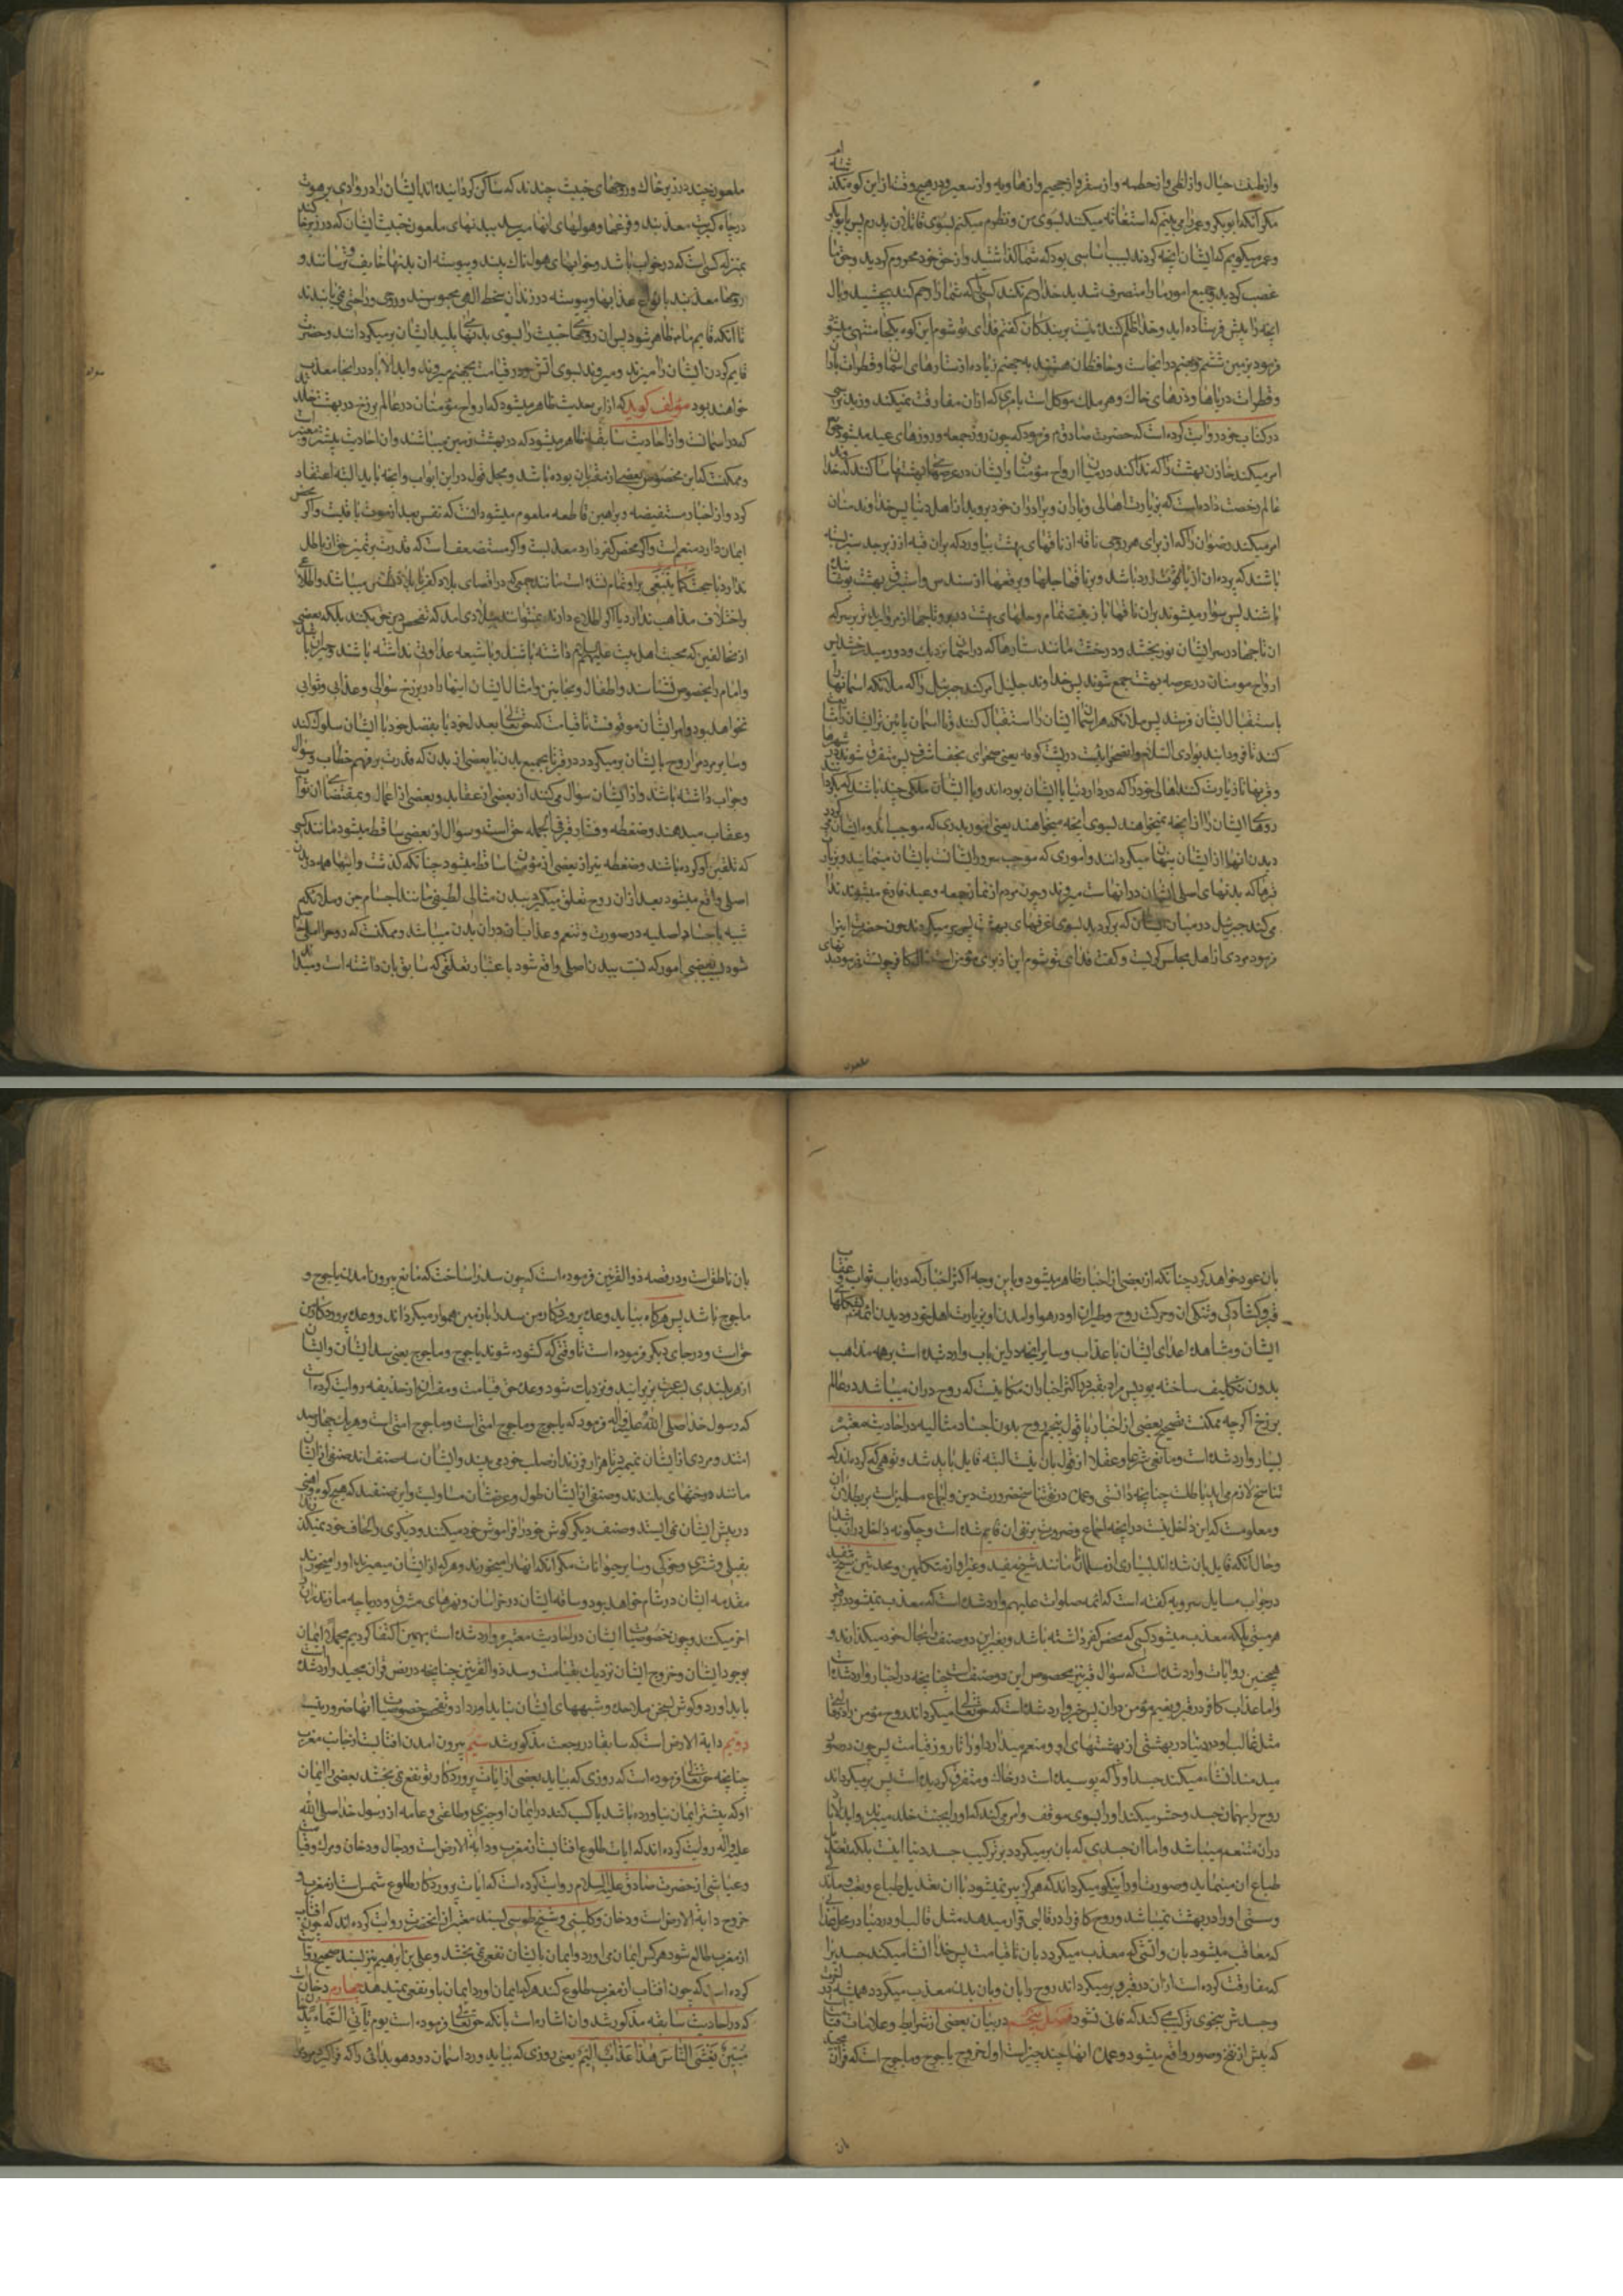 وازطینت خبال وازلظی وازحطمه وازسقر وازجحیم وازهاویه وازسعیر ودرهیچ وقت ازاین کوه نگذشته‌ام
مگر آنکه ابوبکر وعمر را می بینم که استغاثه میکنند بسوی من ونظر میکنم بسوی قاتلان پدرم پس بابوبکر
وعمر میگویم که ایشان آنچه کردند بسبب اساسی بود که شما گذاشتید واز حق خود محروم کردید وحق ما
غصب کردید وجمیع امور ما را متصرف شدید خدا رحم نکند کسی را که شما را رحم کند بچشید وبال
آنچه را پیش فرستاده اید وخدا ظلم کننده نیست بر بندگان گفتم فدای تو شوم این کوه بکجا منتهی میشود
فرمود بزمین ششم وجهنم در آنجاست وحافظان هستند بر جهنم زیاده از ستارهای آسمان وقطرات باران
وقطرات دریاها وذرهای خاک وهر ملک موکل است بامری که ازآن مفارقت نمیکند
در کتاب خود روایت کرده است که حضرت صادق ع فرمود که چون روز جمعه وروزهای عید میشود حق
امر میکند خازن بهشت را که ندا کند در میان ارواح مؤمنان وایشان در عرصهای بهشتها ساکنند که خدا
عالم رخصت داده است که بزیارت اهالی ویاران وبرادران خود بروید از اهل دنیا پس خداوند منان
امر میکند رضوان را که از برای هر روحی ناقه از ناقهای بهشت بیاورد که بر آن قبه از زبرجد سبز بسته
باشند که پرده آن از یاقوت زرد باشد وبر ناقها جلها وبرقعها از سندس واستبرق بهشت پوشانیده
باشند پس سوار میشوند بر آن ناقها با زینت تمام وحلهای بهشت در بر وتاجها از مروارید تر بر سر که
آن تاجها در سر ایشان نور بخشد ودرخشد مانند ستارها که در آسمان نزدیک ودور میدرخشد پس
ارواح مومنان در عرصه بهشت جمع شوند پس خداوند جلیل امر کند جبرئیل را که ملائکه آسمانها
باستقبال ایشان فرستد پس ملائکه هر آسمان ایشان را استقبال کنند وتا آسمان پائین تر ایشان را مشایعت
کنند تا فرود آیند بوادی السلام وآن صحرائیست در پشت کوفه یعنی صحرای نجف اشرف پس متفرق شوند در شهرها
وقریها تا زیارت کنند اهالی خود را که در دار دنیا با ایشان بوده اند وبا ایشان ملکی چند باشند که میگردانند
روهای ایشان را از آنچه نمیخواهند بسوی آنچه میخواهند یعنی امور بدی که موجب اندوه ایشان میگردد
دیدن آنها از ایشان پنهان میگردانند واموری که موجب سرور ایشانست بایشان مینمایند وبزیارت
قبرها که بدنهای اصلی ایشان در آنهاست میروند وچون مردم از نماز جمعه وعید فارغ میشوند ندا
می کند جبرئیل در میان ایشان که برگردید بسوی غرفهای بهشت پس بر میگردند چون حضرت اینرا
فرمود مردی از اهل مجلس گریست وگفت فدای تو شوم این از برای مؤمن است حال کافر چونست فرمود بدنهای
ملعون چند در زیر خاک وروحهای خبیث چندند که ساکن گردانیده اند ایشان را در وادی برهوت
در چاه کبریت معذبند وفزعها وهولهای آنها میرسد ببدنهای ملعون خبیث ایشان که در زیر خاکند
بمنزله کسی است که در خواب باشد وخوابهای هولناک بیند وپیوسته آن بدنها خایف وترسانند و
روحها معذبند بانواع عذابها وپیوسته در زندان سخط الهی محبوسند وروحی وراحتی نمی یابند
تا آنکه قایم ما ظاهر شود پس آن روحهای خبیث را بسوی بدنهای پلید ایشان برمیگردانند وحضرت
قایم گردن ایشان را میزند ومیروند بسوی آتش ودر قیامت بجهنم میروند وابد الآباد در آنجا معذب
خواهند بود مؤلف گوید که از این حدیث ظاهر میشود که ارواح مؤمنان در عالم برزخ در بهشت خلدند
که در آسمانست واز احادیث سابقه ظاهر میشود که در بهشت زمین میباشند وآن احادیث بیشتر ومعتبرتر است
وممکنست که این مخصوص بعضی از مقربان بوده باشد ومجمل قول در این ابواب وآنچه باید البته اعتقاد
کرد واز اخبار مستفیضه وبراهین قاطعه معلوم میشود آنست که نفس بعد از موت باقیست واگر محض
ایمان دارد منعم است واگر محض کفر دارد معذبست واگر مستضعف است که قدرت بر تمیز حق از باطل
ندارد یا حجت کما ینبغی بر او تمام نشده است مانند جمعی که در اقصای بلاد کفر میباشند واطلاعی
واختلاف مذاهب ندارند یا اگر اطلاع دارند نمیتوانند ببلادی آمد که تفحص دین حق بکنند بلکه بعضی
از مخالفین که محبت اهل بیت علیهم السلام داشته باشند وبا شیعه عداوتی نداشته باشند
وامام را بخصوص نشناسند واطفال ومجانین وامثال ایشان اینها را در برزخ سؤالی وعذابی وثوابی
نخواهد بود وامر ایشان موقوفست تا قیامت که حق تعالی بعدل خود یا بفضل خود با ایشان سلوک کند
وسایر مردم را روح بایشان برمیگردد در قبر یا بجمیع بدن یا ببعضی از بدن که قدرت بر فهم خطاب وسؤال
وجواب داشته باشد واز ایشان سؤال می کنند از بعضی از عقاید وبعضی از اعمال وبمقتضای آن ثواب
وعقاب میدهند وضغطه وفشار قبر فی الجمله حق است وسؤال از بعضی ساقط میشود مانند کسی
که تلقین او کرده باشند وضغطه نیز از بعضی از مؤمنان ساقط میشود چنانکه گذشت واینها همه در بدن
اصلی واقع میشود بعد از آن روح تعلق میگیرد ببدن مثالی لطیفی مانند اجسام جن وملائکه
شبیه باجسام اصلیه در صورت وتنعم وعذابشان در آن بدن میباشد وممکنست که روح را المی حاصل
شود ببعضی امور که نسبت ببدن اصلی واقع شود باعتبار تعلقی که سابق بآن داشته است وبعد از
بآن عود خواهد کرد چنانکه از بعضی از اخبار ظاهر میشود وباین وجه اکثر اخبار که در باب ثواب وعقاب
قبر وگشادگی وتنگی آن وحرکت روح وطیران او در هوا وآمدن او بزیارت اهل خود ودیدن ائمه
ایشان ومشاهده اعدای ایشان با عذاب وسایر آنچه در این باب وارد شده است بر همه مذاهب
بدون تکلیف ساخته بود پس مراد بقبر در اکثر اخبار آن مکانیست که روح در آن میباشد در عالم
برزخ اگر چه ممکنست تصحیح بعضی از اخبار با قول بتجسم روح بدون اجساد مثالیه در احادیث معتبره
بسیار وارد شده است ومانعی شرعا وعقلا از قول بآن نیست البته قایل باید شد وتوهمی که کرده اند که
تناسخ لازم می آید باطلست چنانچه دانستی وعمده در نفی تناسخ ضرورت دین واجماع مسلمین است بر بطلان آن
ومعلومست که این داخل نیست در آنچه اجماع وضرورت بر نفی آن قایم شده است وچگونه داخل در آن باشد
وحال آنکه قایل بآن شده اند بسیاری از مسلمانان مانند شیخ مفید وغیر او از متکلمین ومحدثین
در جواب مسایل سرویه گفته است که از ائمه صلوات علیهم وارد شده است که معذب نمیشود در قبر
هر میتی بلکه معذب میشود کسی که محض کفر داشته باشد وبغیر این دو صنف را بحال خود میگذارند و
همچنین روایات وارد شده است که سؤال قبر نیز مخصوص این دو صنف است چنانچه در اخبار وارد شده است
واما عذاب کافر در قبر ونعیم مؤمن در آن پس خبر وارد شده است که حق تعالی میگرداند روح مؤمن را در
مثل قالب او در دنیا در بهشتی از بهشتهای او ومنعم میدارد او را تا روز قیامت پس چون در صور
میدمند انشاء میکند جسد او را که پوسیده است در خاک ومتفرق گردیده است پس بر میگرداند
روح را بهمان جسد وحشر میکند او را بسوی موقف وامر می کند که او را بجنت خلد میبرند وابد الآباد
در آن متنعم میباشد واما آن جسدی که بآن برمیگردد بر ترکیب جسد دنیا نیست بلکه تعدیل
طباع آن مینماید وصورت او را نیکو میگرداند که هرگز پیر نمیشود با آن تعدیل طباع وتعب وماندگی
وسستی او را در بهشت نمیباشد وروح کافر را در قالبی قرار میدهد مثل قالب او در دنیا در محل عذاب
که معاقب میشود بآن وآتشی که معذب میگردد بآن تا قیامت پس خدا انشا میکند جسدی را
که مفارقت کرده است از آن در قبر وبرمیگرداند روح را بآن وبآن بدن معذب میگردد همیشه در آخرت
وجسدش بنحوی ترکیب می کند که فانی نشود فصل پنجم در بیان بعضی از شرایط وعلامات قیامت
که پیش از نفخ صور واقع میشود وعمده آنها چند چیز است اول خروج یاجوج وماجوج است که قرآن مجید
بآن ناطق است ودر قصه ذوالقرنین فرموده است که چون سد را ساخت که مانع بیرون آمدن یاجوج و
ماجوج باشد پس هرگاه بیاید وعده پروردگار من سد را با زمین هموار میگرداند ووعده پروردگار من
حق است ودر جای دیگر فرموده است تا وقتی که گشوده شوند یاجوج وماجوج یعنی سد ایشان وایشان
از هر بلندی بسرعت بزیر آیند ونزدیک شود وعده حق قیامت ومفسران از حذیفه روایت کرده اند
که رسول خدا صلی الله علیه وآله فرمود که یاجوج وماجوج امتی است وماجوج امتی است وهر یک چهارصد
امتند ومردی از ایشان نمیمیرد تا هزار فرزند از صلب خود می بیند وایشان سه صنف اند صنفی از ایشان
مانند درختهای بلندند وصنفی از ایشان طول وعرضشان مساویست واین صنفند که هیچ کوه وآهنی
در پیش ایشان نمی ایستد وصنف دیگر گوش خود را فراموش خود میکنند ودیگری را لحاف خود میکنند
بفیلی وشتری وخوکی وسایر حیوانات مگر آنکه آنها را میخورند وهر که از ایشان میمیرد او را میخورند
مقدمه ایشان در شام خواهد بود وساقه ایشان در خراسان ونهرهای مشرق ودریاچه مازندران را
آخر میکنند وچون خصوصیات ایشان در احادیث معتبره وارد نشده است بهمین اکتفا کردیم مجملا ایمان
بوجود ایشان وخروج ایشان نزدیک بقیامت وسد ذوالقرنین چنانچه در نص قرآن مجید وارد شده است
باید آورد وگوش بسخن ملاحده وشبههای ایشان نباید داد وتفحص خصوصیات آنها ضرور نیست
دویم دابة الارض است که سابقا در رجعت مذکور شد سیم بیرون آمدن آفتابست از جانب مغرب
چنانچه حق تعالی فرموده است که روزی که بیاید بعضی از آیات پروردگار تو نفع نمی بخشد بعضی را ایمان
او که پیشتر ایمان نیاورده باشد یا کسب کند در ایمان او چیزی وطاعتی وعامه از رسول خدا صلی الله
علیه وآله روایت کرده اند که آیات طلوع آفتابست از مغرب ودابة الارض است ودجال ودخان ومرگ
وعیاشی از حضرت صادق علیه السلام روایت کرده است که آیات پروردگار طلوع شمس است از مغرب و
خروج دابة الارض است ودخان وکلینی وشیخ طوسی بسند معتبر از آنحضرت روایت کرده اند که چون آفتاب
از مغرب طالع شود هر کس ایمان می آورد وایمان بایشان نفع نمی بخشد وعلی بن ابرهیم نیز بسند صحیح روایت
کرده است که چون آفتاب از مغرب طلوع کند هر که ایمان آورد ایمان باو نفعی نمیدهد چهارم دخان
که در احادیث سابقه مذکور شد وآن اشاره است بآنکه حق تعالی فرموده است یوم تأتی السماء بدخان
مبین یغشی الناس هذا عذاب الیم یعنی روزی که بیاید ورد آسمان دود هویدائی را که فراگیرد مردم